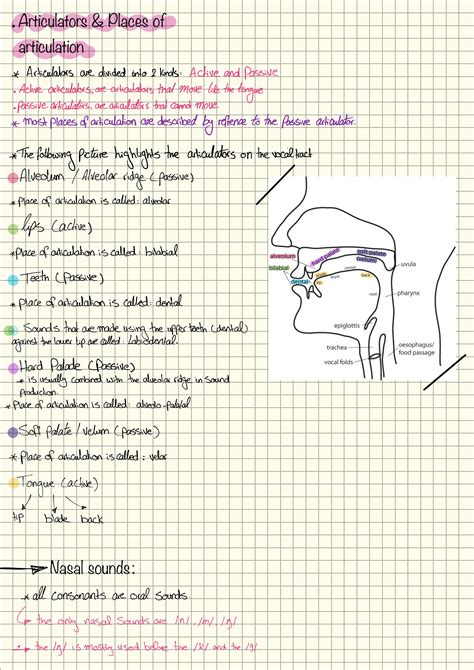 . Articulators & Places of
articulation
* Articulators are divided into 2 kinds: Active and Passive
. Active articulators, are articulators that move like the tongue
. passive articulators, are articulators that cannot move.
* most places of articulation are described by refrence to the Passive articulator.
* The following picture highlights the articulators on the vocal tract
Alveolum / Alveolar ridge (passive)
* place of articulation is called: alveolar
lips (active)
* place of articulation is called: bilabial
Teeth (passive)
* place of articulation is called: dental
Sounds that are made using the upper teeth (dental)
against the lower lip are called: Labiodental.
Hard Palade (Passive)
* is usually combined with the alveolar ridge in sound
production.
* Place of articulation is called: alveolo-palatal
Soft Palate / velum (passive)
* Place of articulation is called: velar
Tongue (active)
tip blade back
Nasal sounds:
* all consonants are oral sounds
. the only nasal sounds are /n/ , /m/ , /ŋ/
. the /ŋ/ is mostly used before the /k/ and the /g/
alveolum
hard palate
soft palate
(velum)
bilabial
dental
blade
tip
front
center
back
root
uvula
pharynx
epiglottis
trachea
vocal folds
oesophagus/
food passage